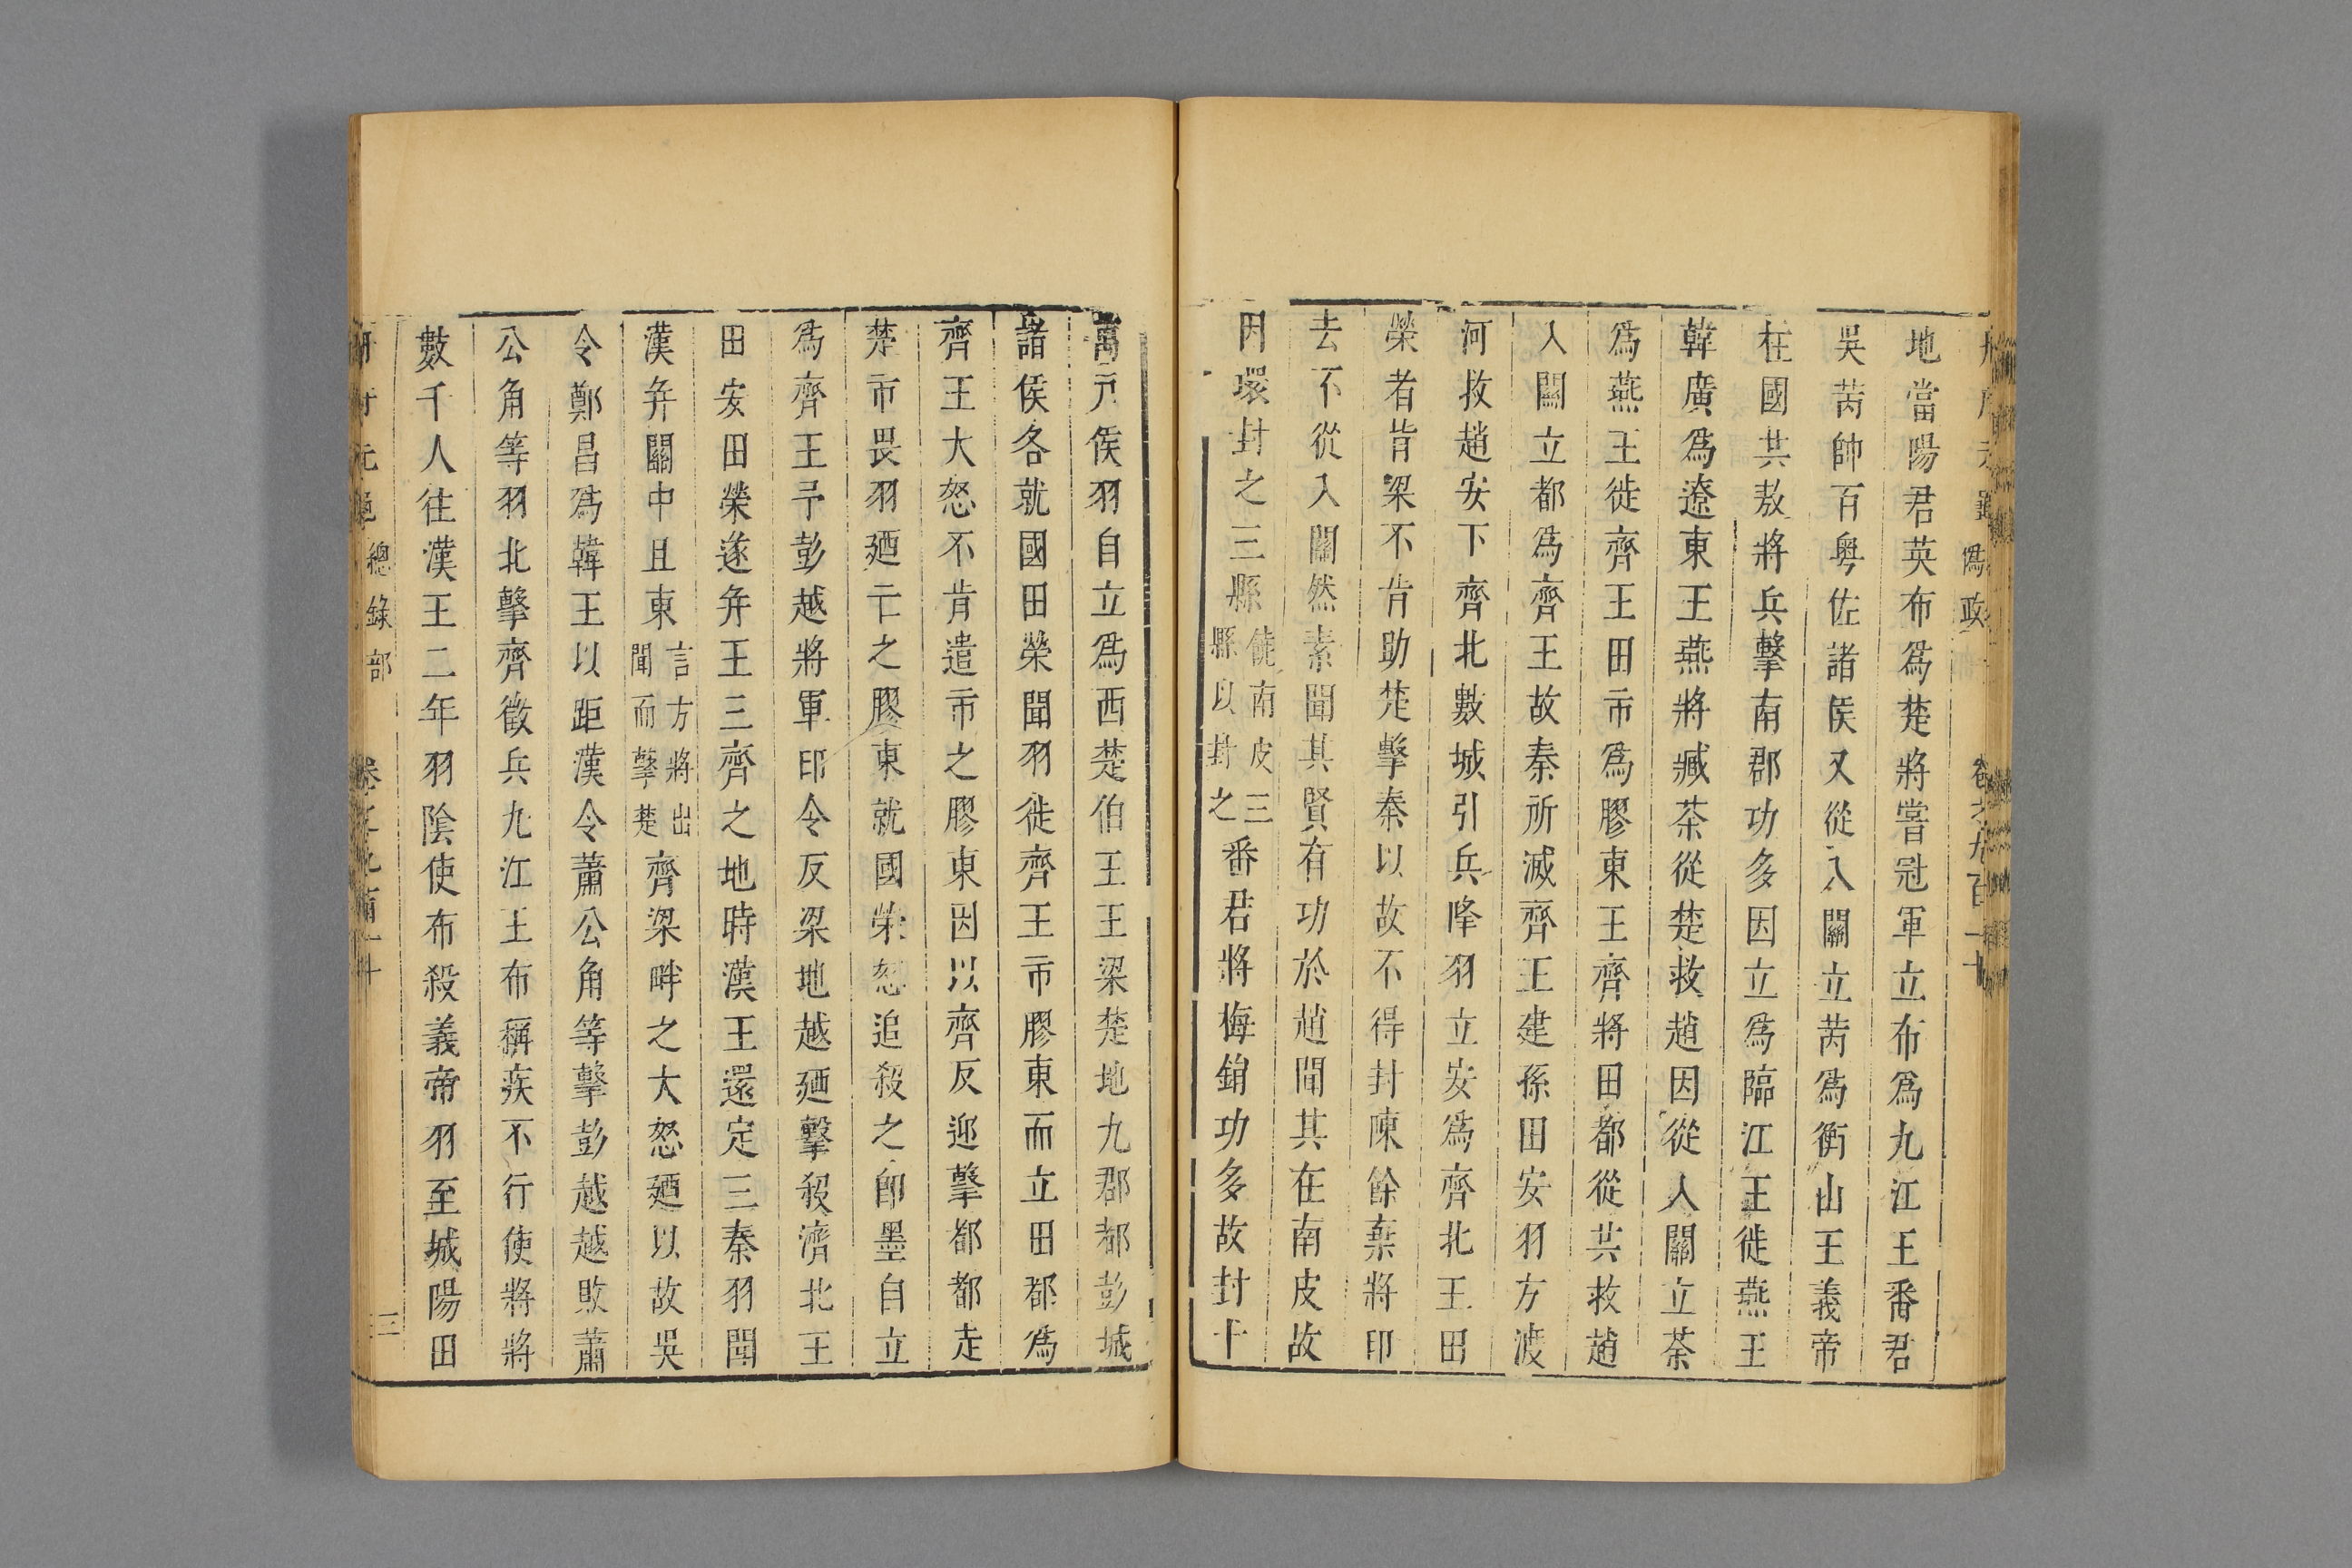 地當陽君英布爲楚將嘗冠軍立布爲九江王番君
吳芮帥百粤佐諸侯又從入關立芮爲衡山王義帝
柱國共敖將兵擊南郡功多因立爲臨江王徙燕王
韓廣爲遼東王燕將臧荼從楚救趙因從入關立荼
爲燕王徙齊王田市爲膠東王齊將田都從共救趙
入關立都爲齊王故秦所滅齊王建孫田安羽方渡
河救趙安下齊北數城引兵降羽立安爲齊北王田
榮者背梁不肯助楚擊秦以故不得封陳餘棄將印
去不從入關然素聞其賢有功於趙聞其在南皮故
因環封之三縣繞南皮三縣以封之番君將梅鋗功多故封十
萬戸侯羽自立爲西楚伯王王梁楚地九郡都彭城
諸侯各就國田榮聞羽徙齊王市膠東而立田都爲
齊王大怒不肯遣市之膠東因以齊反迎擊都都走
楚市畏羽廼亡之膠東就國榮怒追殺之卽墨自立
爲齊王予彭越將軍印令反梁地越廼擊殺濟北王
田安田榮遂并王三齊之地時漢王還定三秦羽聞
漢并關中且東言方將出聞而擊楚齊梁畔之大怒廼以故吳
令鄭昌爲韓王以距漢令蕭公角等擊彭越越敗蕭
公角等羽北擊齊徵兵九江王布稱疾不行使將將
數千人往漢王二年羽陰使布殺義帝羽至城陽田
總錄部
三